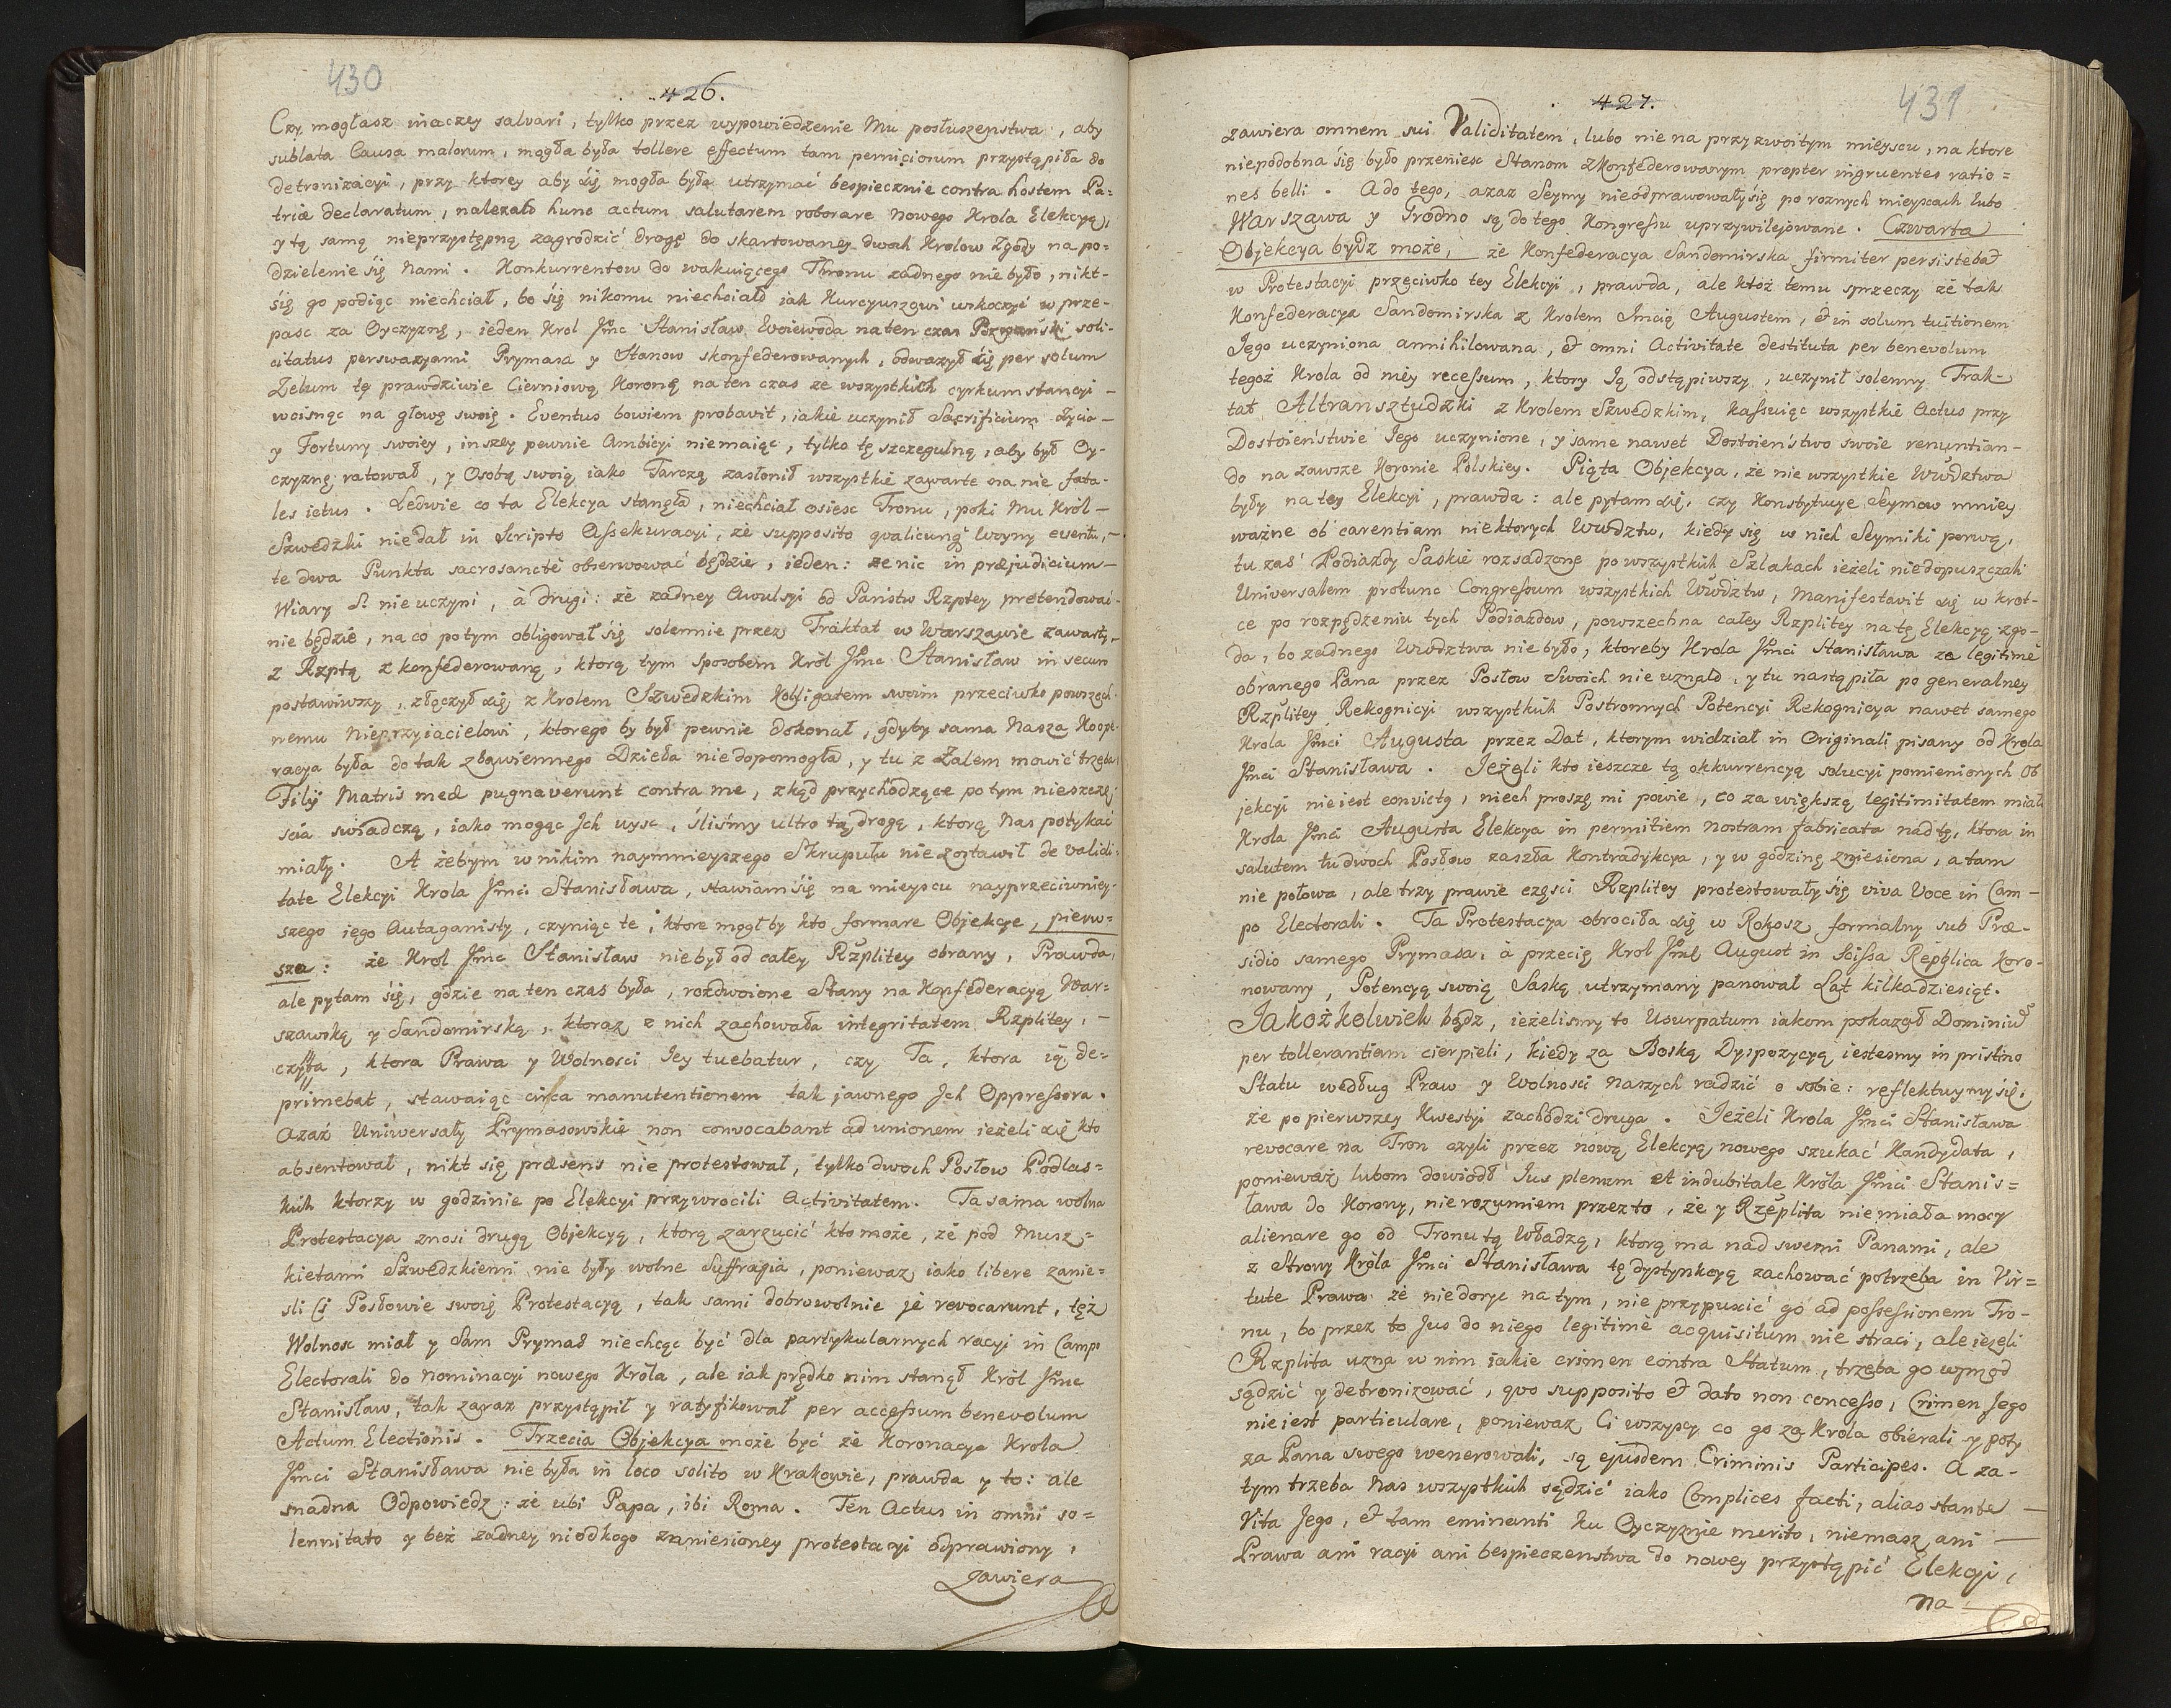 430
426.
Czy mogłasz inaczey salvari, tylko przez wypowiedzenie Mu posłuszenstwa, aby
sublata Causa malorum, mogła była tollere effectum tam perniciorum przystąpiła do
detronizacyi, przy ktorey aby się mogła była utrzymać bespiecznie contra hostem Pa=
triæ declaratum, należało hunc actum salutarem roborare nowego Krola Elekcyą,
y tą samą nieprzystępną zagrodzić drogę do skartowaney dwoch Krolow Zgody na po=
dzielenie się Nami. Konkurrentow do wakuiącego Thronu zadnego nie było, nikt-
się go podiąc niechciał, bo się nikomu niechciało iak Kurcyuszowi wskoczyć w prze-
pasc za Oyczyznę, ieden Krol Jmc Stanisław Woiewoda na ten czas Poznański soli-
citatus perswazyami Prymasa y Stanow skonfederowanych, odwazył się per solum
Zelum tę prawdziwie Cierniową Koronę, na ten czas ze wszystkich cyrkumstancyi -
woisnąc na głowę swoię. Eventus bowiem probavit, iakie uczynił Sacrificium Zycia -
y Fortuny swoiey, inszey pewnie Ambicyi niemaiąc, tylko tę szczegulną, aby był Oy-
czyznę ratował, y Osobą swoią iako Tarczą zasłonił wszystkie zawarte na nie fata-
les ictus. Ledwie co ta Elekcya stanęła, niechciał osiesc Tronu, poki Mu Król -
Szwedzki niedał in Scripto Assekuracyi, że supposito qvalicunq Woyny eventu, -
te dwa Punkta sacrosanctè obserwować będzie, ieden: że nic in præjudicium -
Wiary S. nie uczyni, à drugi: że zadney Awulsyi od Państw Rzptey pretendować-
nie będzie, na co potym obligował się solennie przez Traktat w Warszawie zawarty -
z Rzptą z konfederowaną, ktorą tym sposobem Król Jmc Stanisław in securo
postawiwszy, złączył się z Krolem Szwedzkim Kolligatem swoim przeciwko powszech-
nemu Nieprzyiacielowi, ktorego by był pewnie dokonał, gdyby sama Nasza Koope-
racya była do tak zbawiennego Dzieła niedopomogła, y tu z Zalem mowić trzeba
Filij Matris meæ pugnaverunt contra me, zkąd przychodzące potym nieszczę-
scia swiadczą, iako mogąc Jch uysc, śliśmy ultro tą drogą, ktorą Nas potykać
miały. A żebym w nikim naymnieyszego Skrupułu nie zostawił de validi-
tate Elekcyi Krola Jmci Stanisława, stawiam się na mieyscu nayprzeciwniey-
szego iego Autagonisty, czyniąc te, ktore mogłby kto formare Objekcye, pierw=
sza: że Krol Jmc Stanisław nie był od całey Rzplitey obrany, Prawda,
ale pytam się, gdzie na ten czas była, rozdwoione Stany na Konfederacyą War=
szawską y Sandomirską, ktoraz z nich zachowała integritatem Rzplitey, -
czyta, ktora Prawa y Wolnosci Jey tuebatur, czy Ta, ktora ią de-
primebat, stawaiąc circa manutentionem tak jawnego Jch Oppressora.
Azaż Uniwersały Prymasowskie non convocabant ad unionem ieżeli się kto
absentował, nikt się præsens nie protestował, tylko dwoch Posłow Podlas=
kich ktorzy w godzinie po Elekcyi przywrocili Activitatem. Ta sama wolna
Protestacya znosi drugą Objekcyą, ktorą zarzucić kto może, że pod Musz=
kietami Szwedzkiemi nie były wolne Suffragia, poniewaz iako libere zanie=
sli Ci Posłowie swoię Protestacyą, tak sami dobrowolnie ję revocarunt, też
Wolnosc miał y Sam Prymas niechcąc być dla partykularnych racyi in Campo
Electorali do nominacyi nowego Króla, ale iak prędko nim stanął Król Jmc
Stanisław, tak zaraz przystąpił y ratyfikował per accessum benevolum
Actum Electionis. Trzecia Objekcya może być że Koronacya Krola
Jmci Stanisława nie była in loco solito w Krakowie, prawda y to: ale
snadna Odpowiedz: że ubi Papa, ibi Roma. Ten Actus in omni so=
lennitate y bez zadney niodkogo zaniesioney protestacyi odprawiony,
zawiera
427.
431
zawiera omnem sui Validitatem, lubo nie na przyzwoitym mieyscu, na ktore
niepodobna się było przeniesc Stanom zKonfederowanym propter ingruentes ratio=
nes belli. A do tego, azaz Seymy nieodprawowały się po roznych mieyscach lubo
Warszawa y Grodno są do tego Kongressu uprzywilejowane. Czwarta
Objekcya bydz może, że Konfederacya Sandomirska firmiter persistebat
w Protestacyi przeciwko tey Elekcyi, prawda, ale ktoż temu sprzeczy że tak
Konfederacya Sandomirska z Krolem Jmcią Augustem, & in solum tuitionem
Jego uczyniona annihilowana, & omni Activitate destituta per benevolum
tegoż Krola od niey recessum, ktory Ią odstąpiwszy, uczynił solenny Trak-
tat Altransztudzki z Krolem Szwedzkim, kassuiąc wszystkie Actus przy
Dostoieństwie Jego uczynione, y same nawet Dostoieństwo swoie renuntian-
do na zawsze Koronie Polskiey. Piąta Objekcya, że nie wszystkie Wwdztwa
były na tey Elekcyi, prawda: ale pytam się, czy Konstytucye Seymow mniey
ważne ob carentiam niektorych Wwdztw, kiedy się w nich Seymiki porwą,
tu zaś Podiazdy Saskie rozsadzone po wszystkich Szlakach ieżeli niedopuszczali
Universalem protunc Congressum wszystkich Wwdztw, Manifestavit się w krot-
ce po rozpędzeniu tych Podiazdow, powszechna całey Rzplitey na tę Elekcyą zgo-
da, bo zadnego Wwdztwa nie było, ktoreby Krola Jmci Stanisława za legitimè
obranego Pana przez Posłow Swoich nie uznało, y tu nastąpiła po generalney
Rzplitey Rekognicyi wszystkich Postronnych Potencyi Rekognicya nawet samego
Krola Jmci Augusta przez Dat, ktorym widział in Originali pisany od Krola
Jmci Stanisława. Jeżeli kto ieszcze tą okkurrencyą solucyi pomienionych Ob
jekcyi nie iest convictą, niech proszę mi powie, co za większą legitimitatem miała
Krola Jmci Augusta Elekcya in perniciem nostram fabricata nad tę, ktora in
salutem tu dwoch Posłow zaszła Kontradykcya, y w godzinę zniesiona, a tam
nie połowa, ale trzy prawie częsci Rzplitey protestowały się viva Voce in Cam-
po Electorali. Ta Protestacya obrociła się w Rokosz formalny sub Præ-
sidio samego Prymasa, à przecię Krol Jmć August in scissa Repblica Koro-
nowany, Potencyą swoią Saską utrzymany panował Lat kilkadziesiąt.
Jakożkolwiek bądz, ieżelismy to Usurpatum iakom pokazał Dominiu
per tollerantiam cierpieli, kiedy za Boską Dyspozycyą iestesmy in pristino
Statu według Praw y Wolnosci Naszych radzić o sobie: reflektuymy się,
że po pierwszey Kwestyi zachodzi druga. Jeżeli Krola Jmci Stanisława
revocare na Tron czyli przez nową Elekcyą nowego szukać Kandydata,
ponieważ lubom dowiodł Ius plenum et indubitale Króla Jmci Stanis=
ława do Korony, nie rozumiem przez to, że y Rzeplita niemiała mocy
alienare go od Tronu tą Władzą, ktorą ma nad swemi Panami, ale
z Strony Króla Jmci Stanisława tę dystynkcyą zachować potrzeba in Vir=
tute Prawa że niedosyc na tym, nie przypuscić go ad possessionem Tro-
nu, bo przez to Jus do niego legitimè acquisitum nie straci, ale ieżeli
Rzplita uzna w nim iakie crimen contra Statum, trzeba go wprzod
sądzić y detronizować, qvo supposito & dato non concesso, Crimen Jego
nie iest particulare, poniewaz Ci wszyscy co go za Krola obierali y poty
za Pana swego wenerowali, są ejusdem Criminis Participes. A za-
tym trzeba Nas wszystkich sądzić iako Complices facti, alias stante -
Vita Jego, & tam eminenti ku Oyczyznie merito, niemasz ani -
Prawa ani racyi ani bespieczenstwa do nowey przystąpić Elekcyi,
na